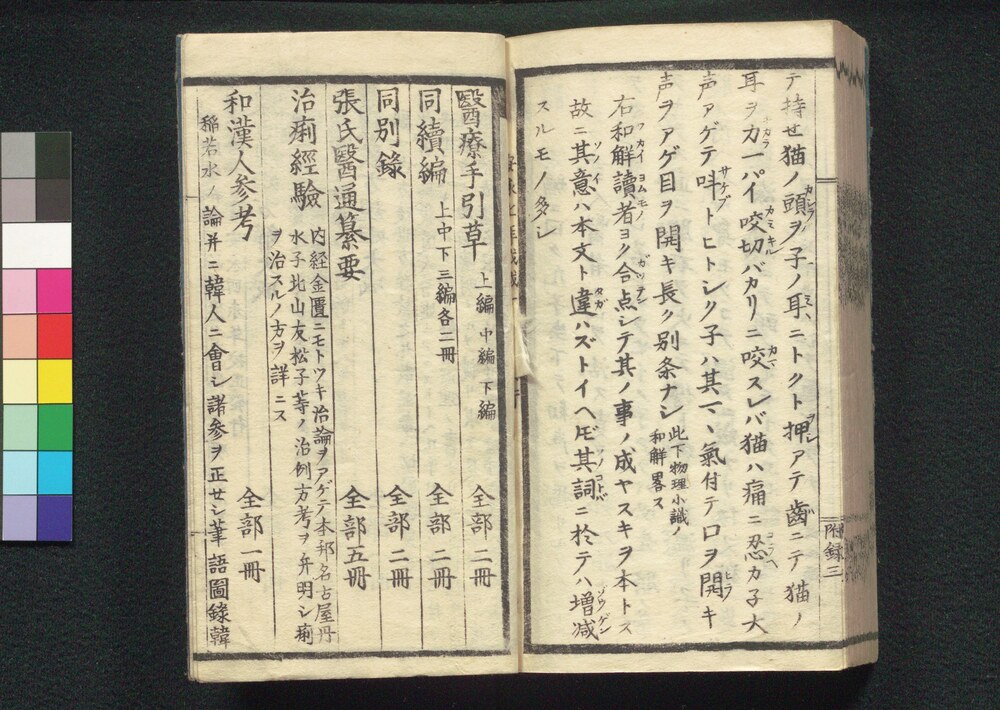 テ持せ猫ノ頭ヲ子ノ耳ニトクト押アテ歯ニテ猫ノ
耳ヲカ一パイ咬切バカリニ咬スレバ猫ハ痛ニ忍カ子大
声アゲテ叫トヒトシク子ハ其マヽ氣付テ口ヲ開キ
声ヲアゲ目ヲ開キ長ク別条ナシ此下物理小識ノ
和解畧ス
右和解讀者ヨク合点シテ其ノ事ノ成ヤスキヲ本トス
故ニ其意ハ本文ト違ハズトイヘ𪜈其詞ニ於テハ増減
スルモノ多シ
附録三
醫療手引草 上編 中編 下編 全部二冊
同續編 上中下三編各二冊 全部二冊
同別錄 全部二冊
張氏醫通纂要 全部五冊
治痢經驗 内経金匱ニモトツキ治論ヲアゲテ本邦名古屋丹
水子北山友松子等ノ治例方考ヲ并明シ痢
ヲ治スルノ方ヲ詳ニス
全部一冊
和漢人参考
稲若水ノ論并ニ韓人ニ會シ諸参ヲ正せシ筆語圖錄韓